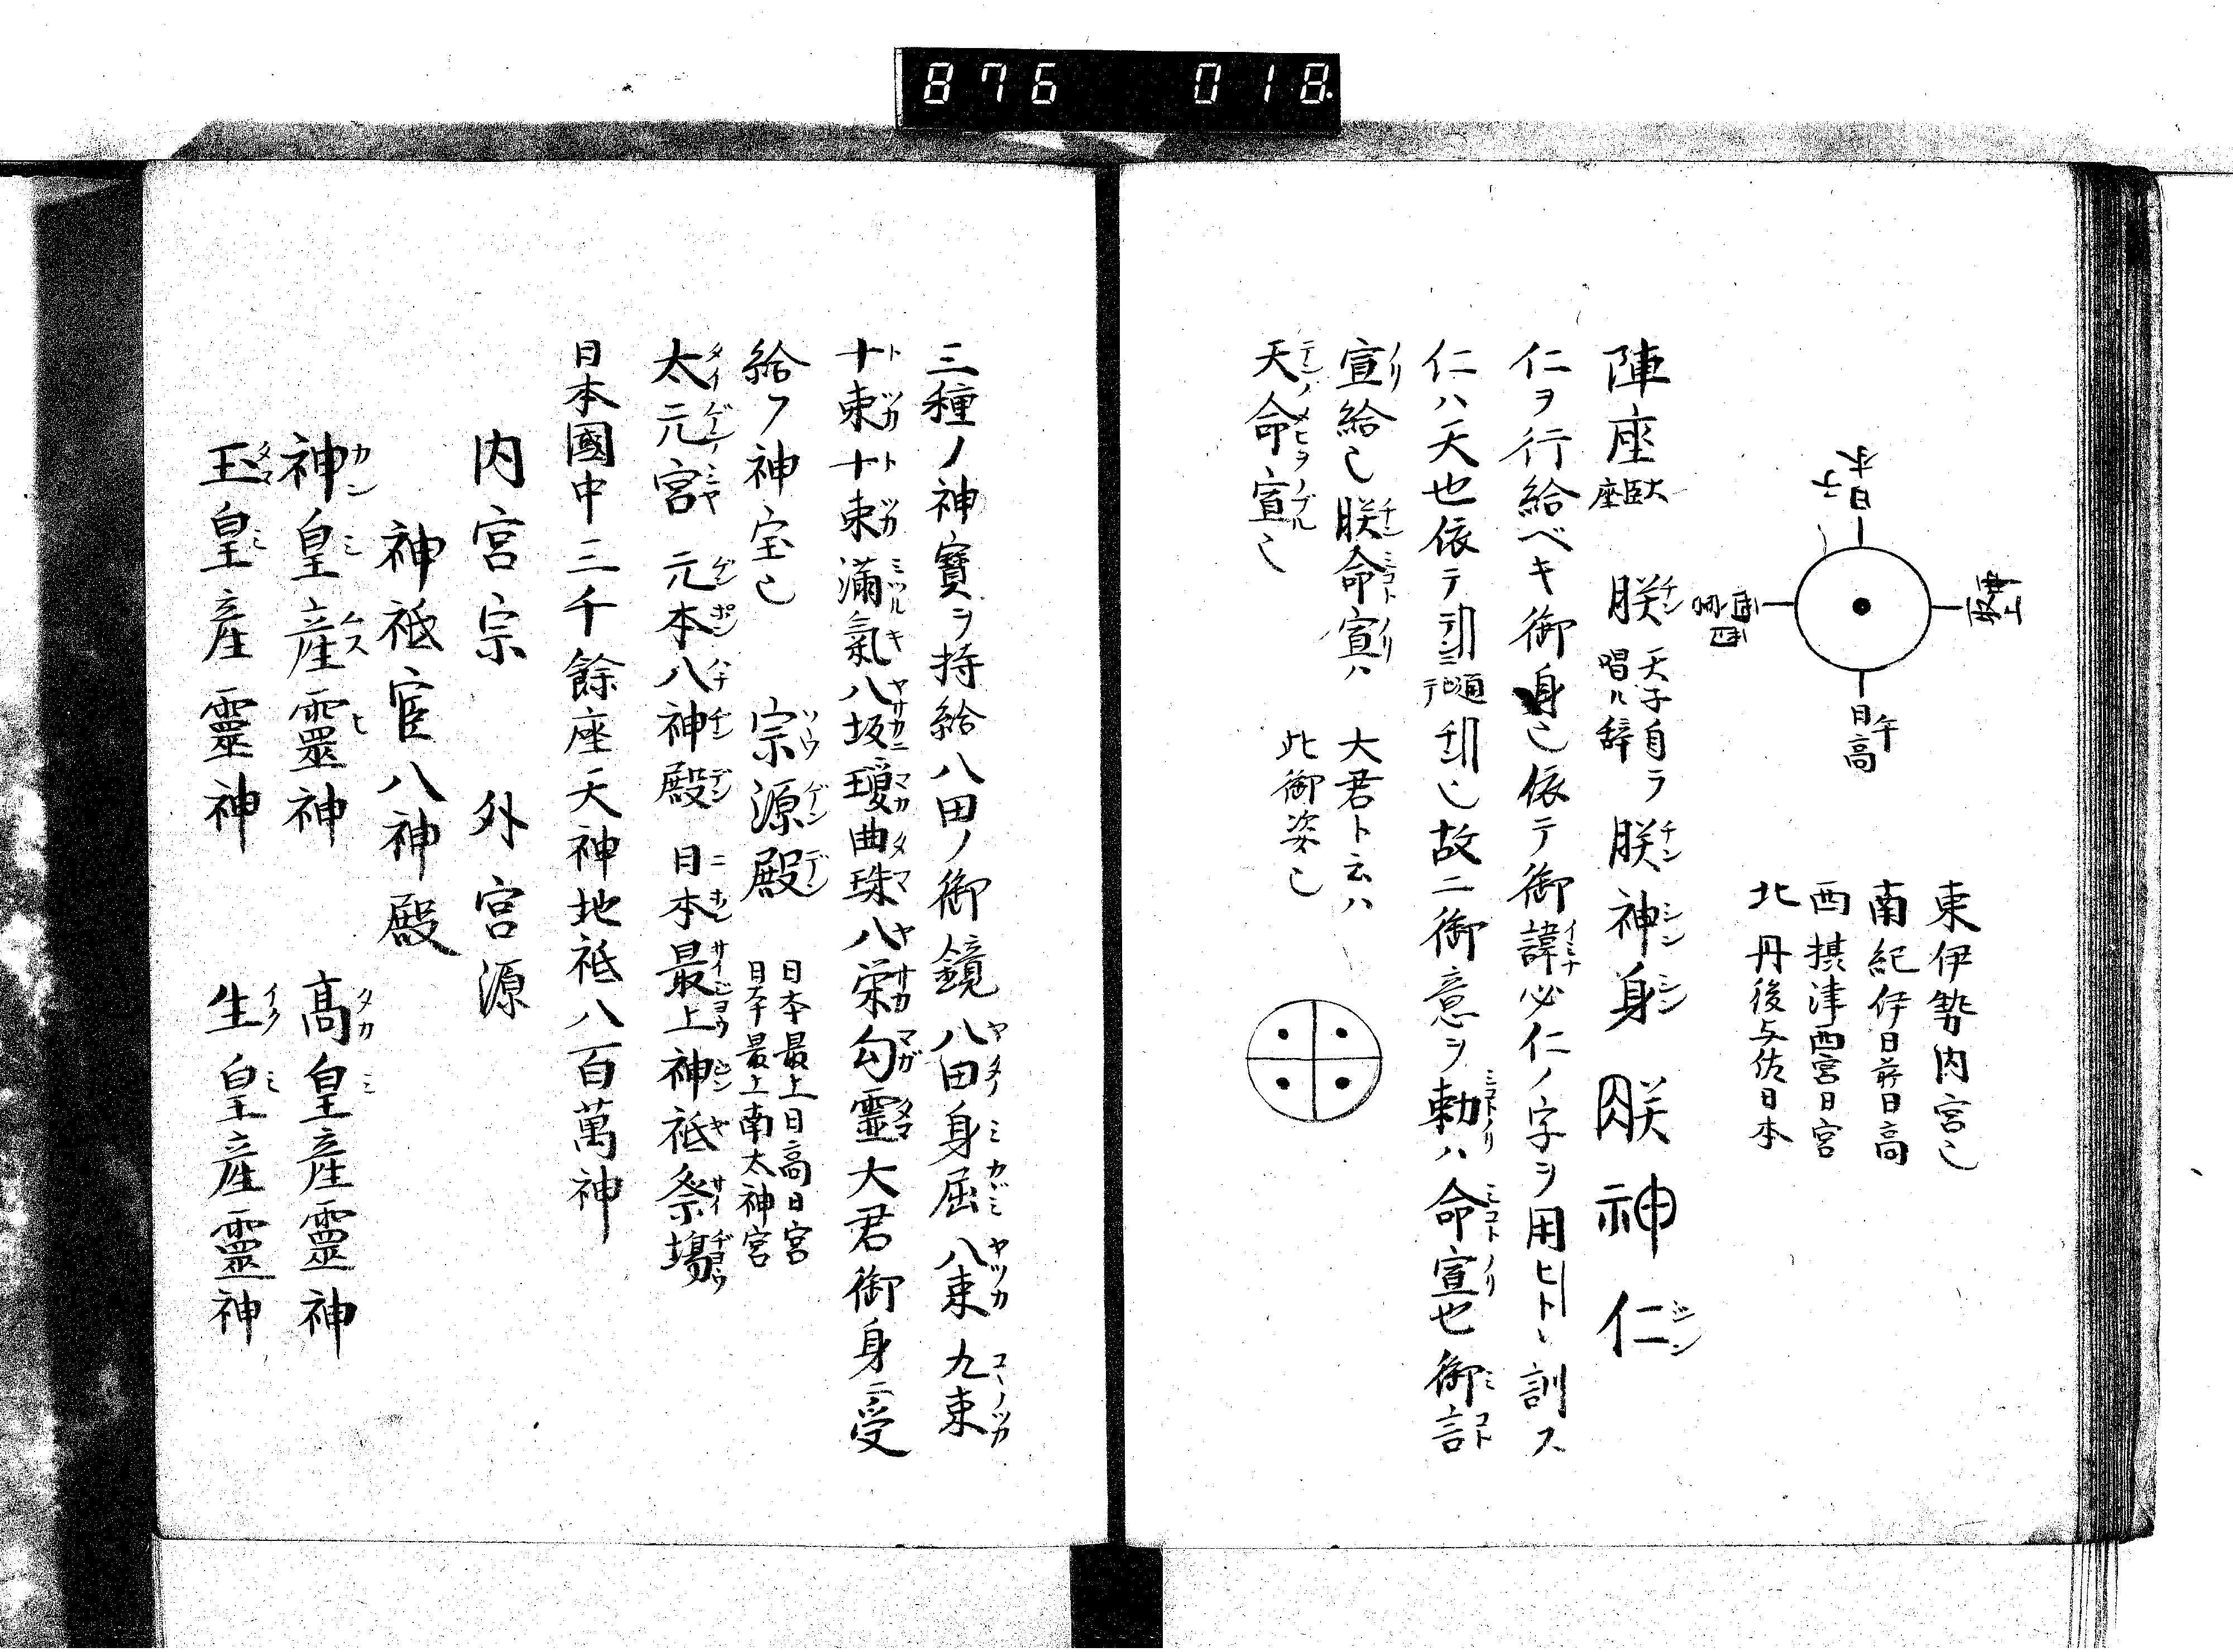 876 018
東伊勢内宮也
南紀伊日前日高
西摂津西宮日宮
北丹後与佐日本
午
日高
陣座 大臣座 朕 天子自ラ唱ル辞 朕神身 朕神仁
仁ヲ行給ベキ御身也依テ御諱必仁ノ字ヲ用ヒトヽ訓ス
仁ハ天也依テ 故ニ御意ヲ勅ハ命宣也御言
宣給也朕命宣ハ 大君ト云ハ
天命宣也 此御姿也
三種ノ神寶ヲ持給八田ノ御鏡八田身屈八束九束
十束十束満氣八坂瓊曲珠八栄勾靈大君御身受
給フ神宝也 宗源殿 日本最上日高日宮
日本最上南太神宮
太元宮 元本八神殿 日本最上神祇祭場
日本國中三千餘座天神地祇八百萬神
内宮宗 外宮源
神祇官八神殿
神皇産靈神 高皇産靈神
玉皇産靈神 生皇産靈神